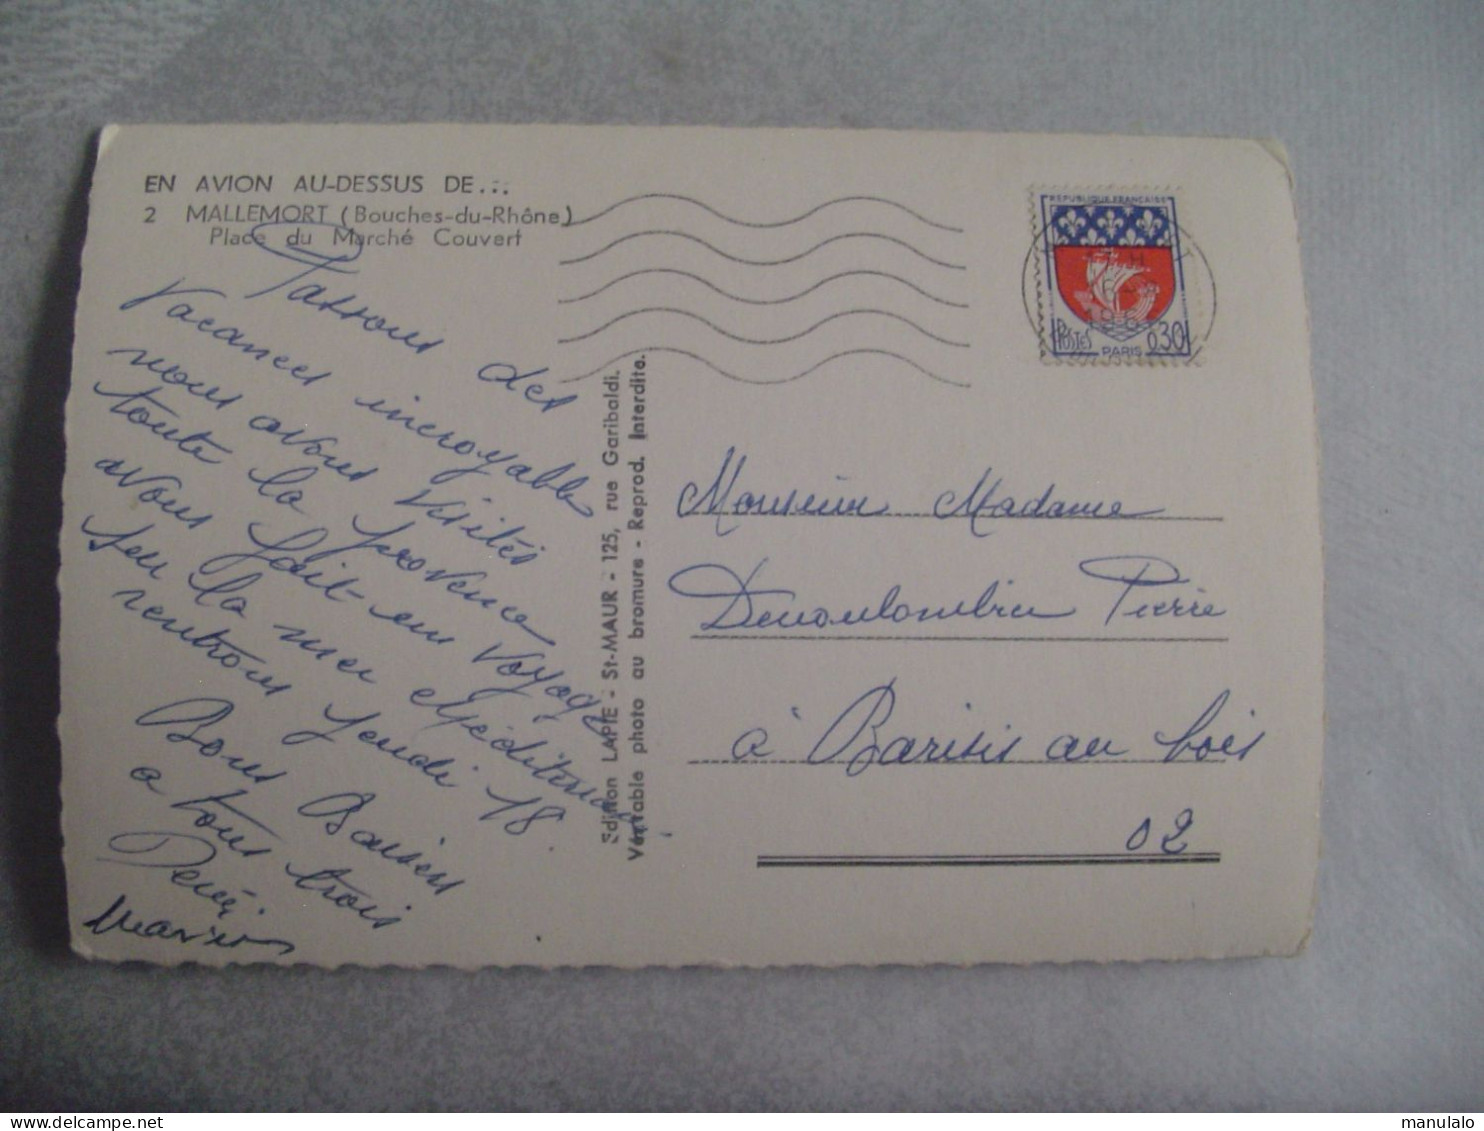 EN AVION AU-DESSUS DE...
2 MALLEMORT (Bouches-du-Rhône)
Place du Marché Couvert
Passons des
Vacances incroyable
nous avons visités
toute la provence
avons fait un voyage
sur la mer Méditerranée
rentrons Jeudi 18.
Bons Baisers
a tous trois
Edition LAPIE - St-MAUR - 125, rue Garibaldi.
Véritable photo au bromure - Reprod. Interdite.
REPUBLIQUE FRANÇAISE
POSTES
0,30
PARIS
Monsieur Madame
Pierre
à Barisis au bois
02
manulalo